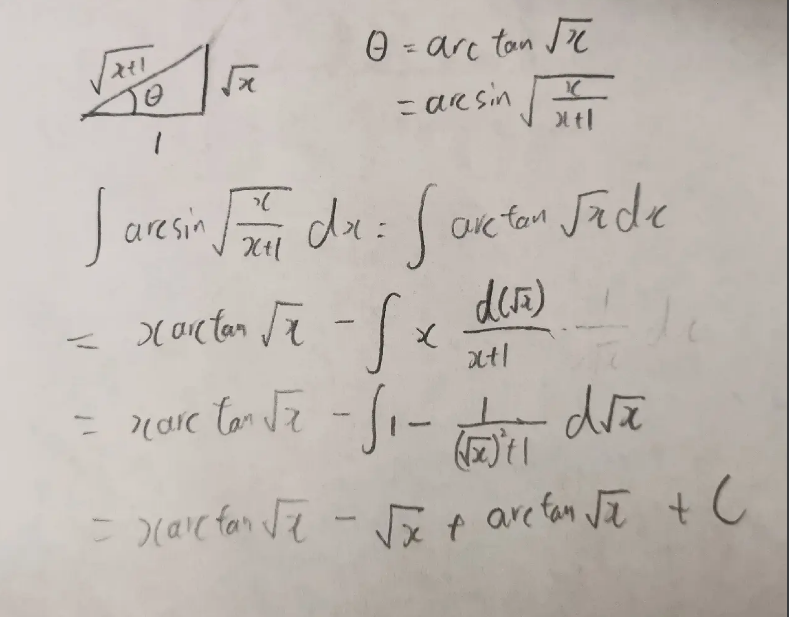 θ = arc tan √x
√(x+1) θ √x
= arcsin √(x/(x+1))
1
∫ arcsin √(x/(x+1)) dx = ∫ arc tan √x dx
= x arc tan √x - ∫ x d(√x)/(x+1)
= x arc tan √x - ∫ 1 - 1/((√x)²+1) d√x
= x arc tan √x - √x + arc tan √x + C